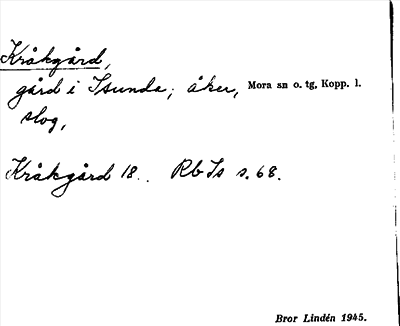 Kråkgård,
gård i Isunda; åker, Mora sn o. tg, Kopp. l.
slog,
Kråkgård 18.. Rb Is s. 68.
Bror Lindén 1945.